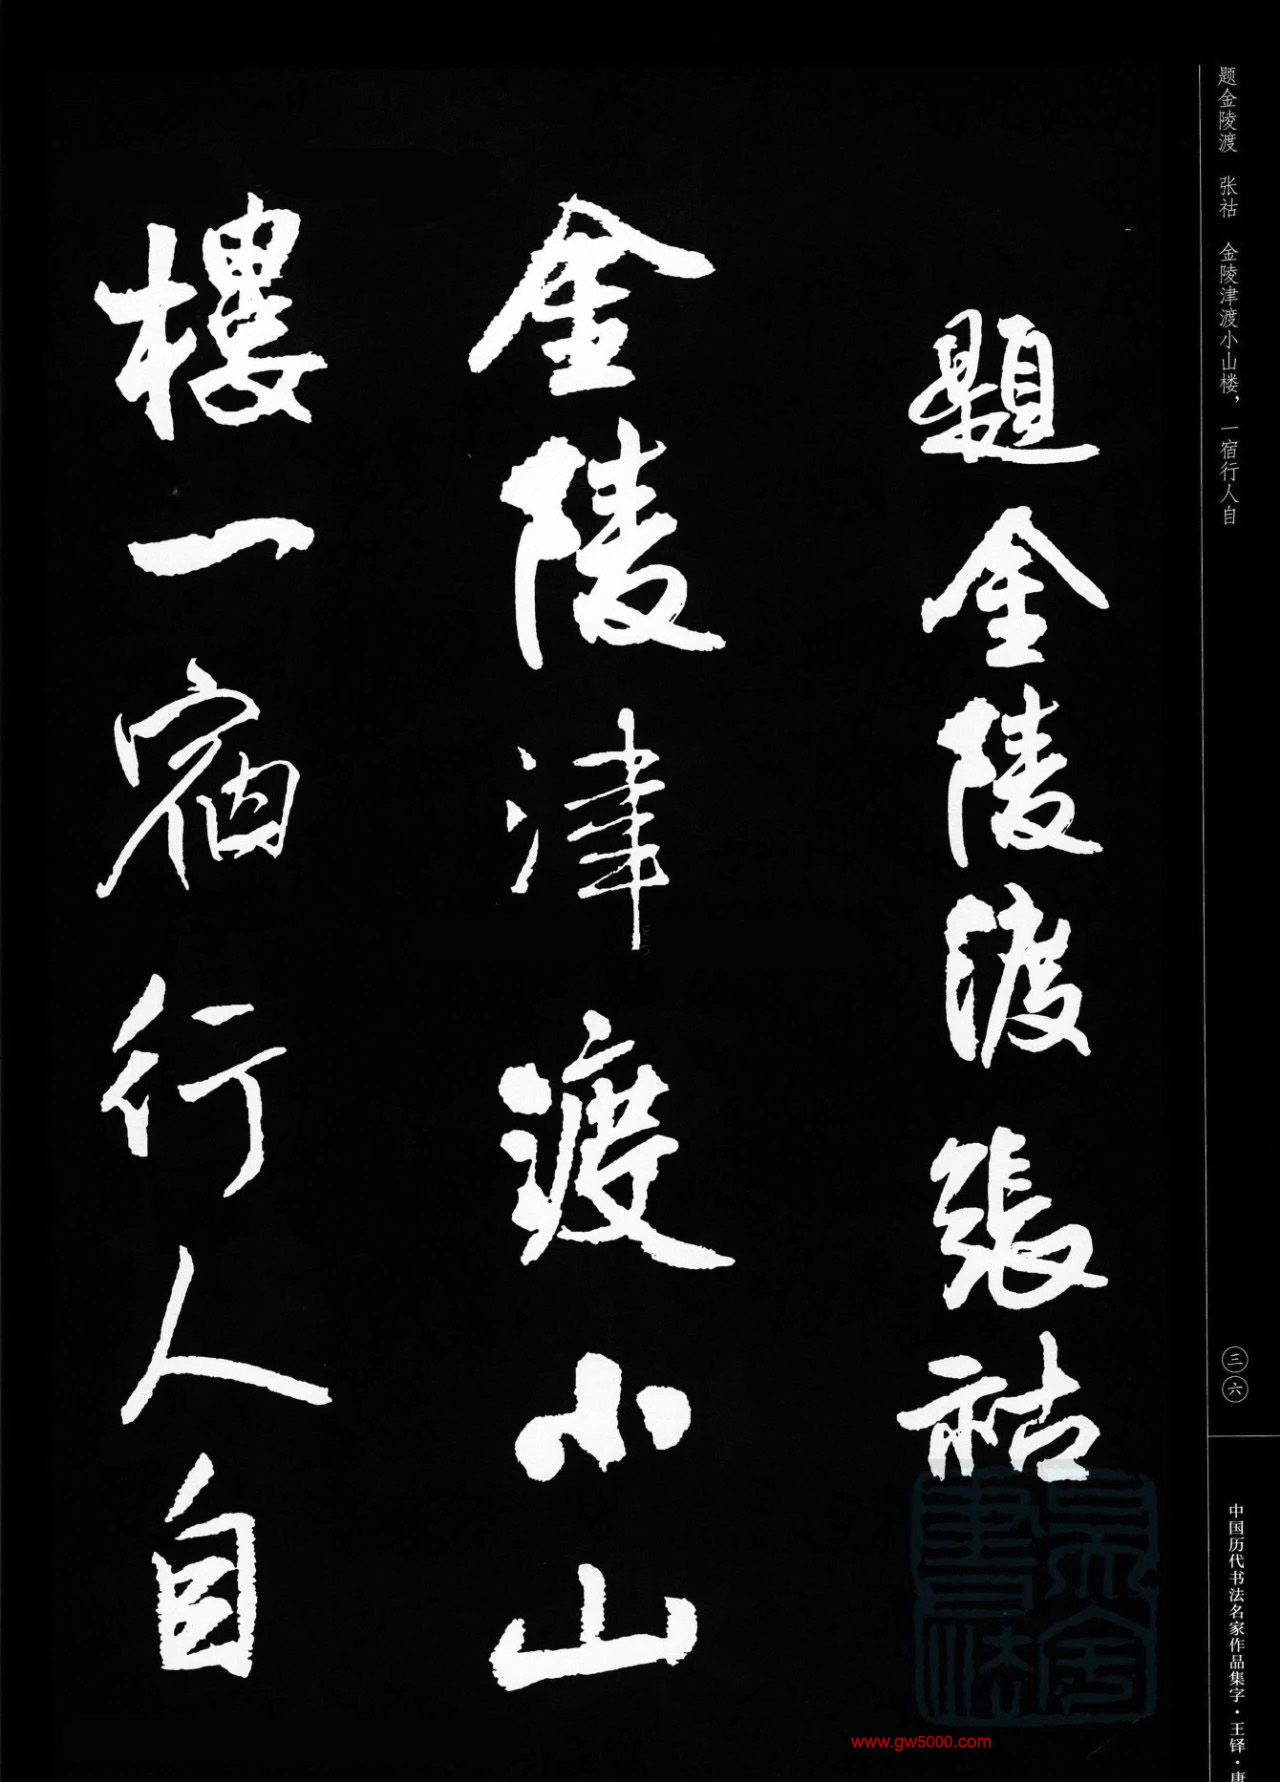 题金陵渡 张祜 金陵津渡小山楼，一宿行人自
題金陵渡張祜
金陵津渡小山
樓一宿行人自
三六
中国历代书法名家作品集字·王铎·唐
www.gw5000.com